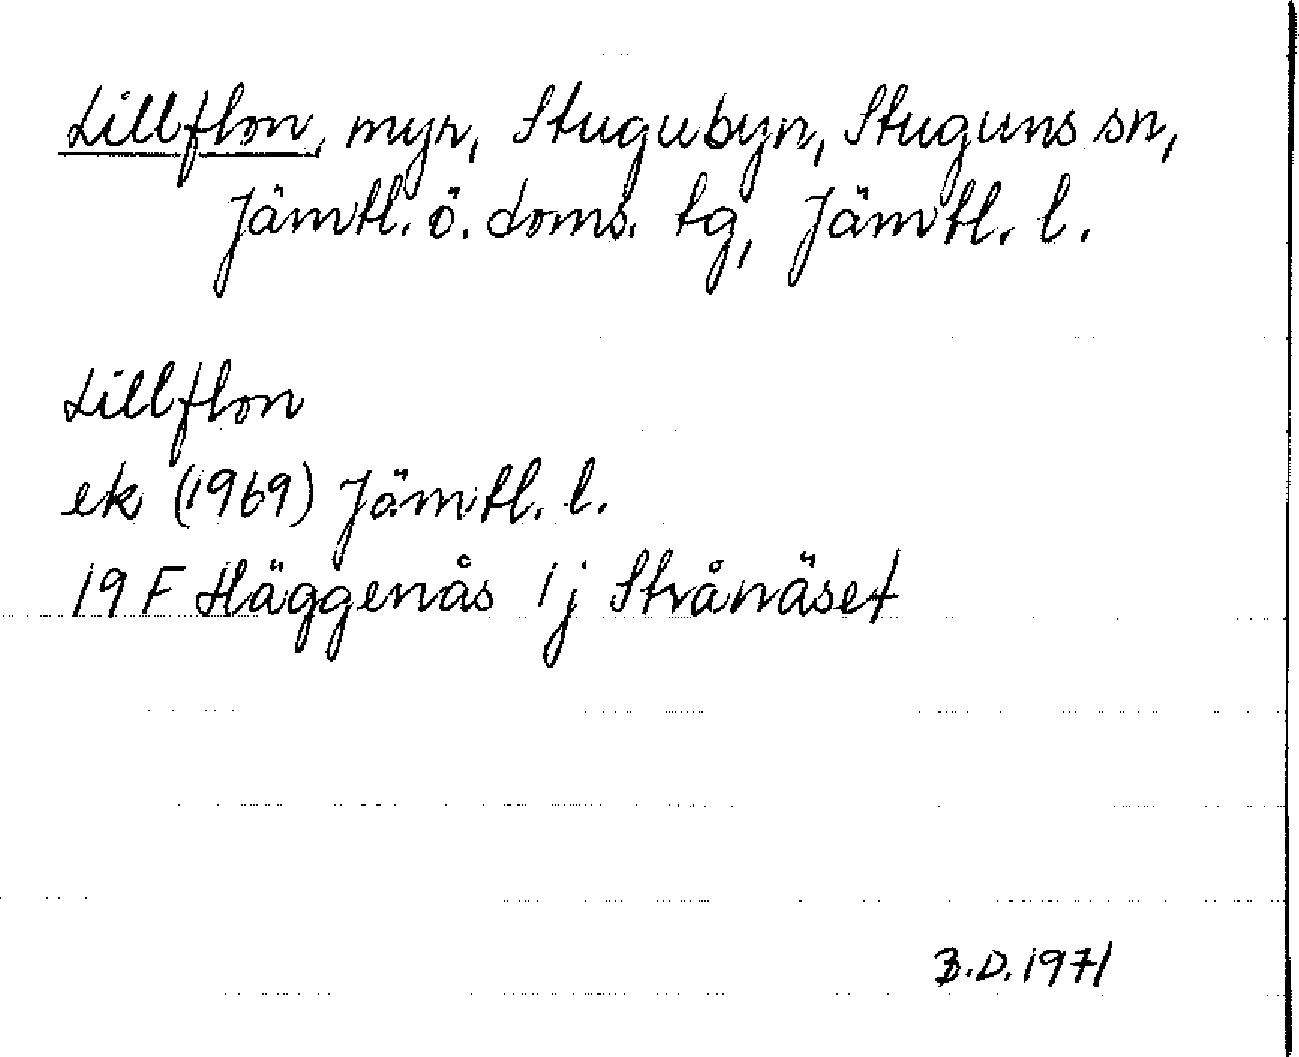 Lillflon, myr, Stugubyn, Stuguns sn,
Jämtl. ö. doms. tg, Jämtl. l.
Lillflon
ek (1969) Jämtl. l.
19 F Häggenås 1 j Strånäset
B.D. 1971